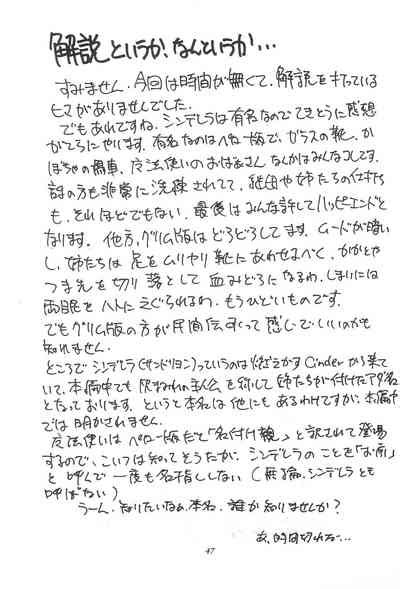 解説というか、なんというか…
すみません。今回は時間が無くて、解説を打っている
ヒマがありませんでした。
でもあれですね、シンデレラは有名なのでてきとうに感想
がてらにやります。有名なのはペロー版で、ガラスの靴、か
ぼちゃの馬車、魔法使いのおばあさんなんかはみんなコレです。
話の方も非常に洗練されてて、継母や姉たちの仕打ち
も、それほどでもない、最後はみんな許してハッピーエンドと
なります。他方、グリム版はどろどろしてます。ムードが暗い
し、姉たちは足をムリヤリ靴にあわせるべく、かかとや
つま先を切り落として血みどろになるわ、しまいには
両眼をハトにえぐられるわ、もうひどいものです。
でもグリム版の方が民間伝すぐって感じでいいのかも
知れません。
ところでシンデレラ(サンドリヨン)っていうのは燃えかすCinderから来て
いて、本編中でも灰まみれの主人公を称して姉たちが付けたアダ名
となっております。というと本名は他にもあるわけですが、本編中
では明かされません。
魔法使いはペロー版だと「名付け親」と訳されて登場
するので、こいつは知ってそうだが、シンデレラのことを「お前」
と呼んで一度も名指ししない(無論、シンデレラとも
呼ばない)
うーん、知りたいなぁ、本名。誰か知りませんか?
あ、時間切れだ…
47